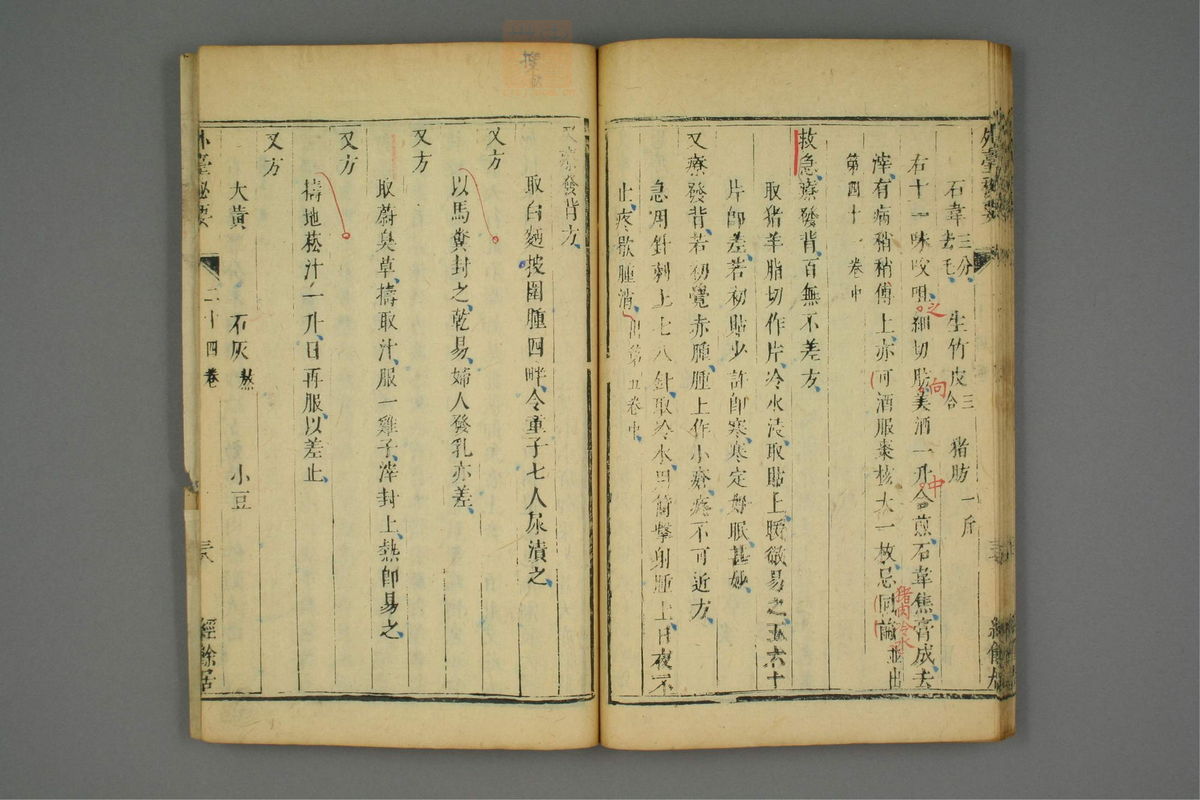 外臺秘要
石韋三分去毛 生竹皮三合 猪肪一斤
右十一味㕮咀細切肪美酒一升合煎石韋焦膏成去
滓有病稍稍傅上亦可酒服棗核大一枚忌同前並出
之
向
中
猪肉冷水
第四十一卷中
救急療發背百無不差方
取猪羊脂切作片冷水浸取貼上暖徹易之五六十
片即差若初貼少許即寒寒定好眠甚妙
又療發背若初覺赤腫腫上作小瘡疼不可近方
急用針刺上七八針取冷水四筒擊射腫上日夜不
止疼歇腫消出第五卷中
又療發背方
取白麵披圍腫四畔令童子七人尿漬之
又方
以馬糞封之乾易婦人發乳亦差
又方
取蔚臭草擣取汁服一雞子滓封上熱即易之
又方
擣地菘汁一升日再服以差止
又方
大黃 石灰熬 小豆
外臺秘要 二十四卷 三六 經餘居